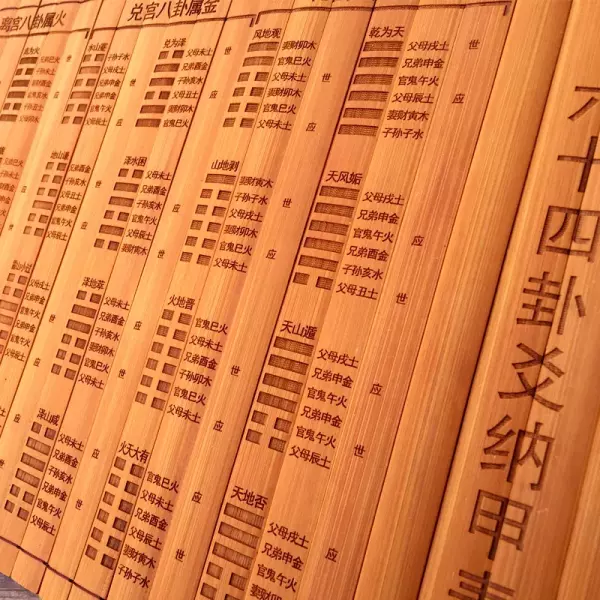 六十四卦爻纳甲
乾为天
父母戌土
兄弟申金
官鬼午火
父母辰土
妻财寅木
子孙子水
世
应
天风姤
父母戌土
兄弟申金
官鬼午火
兄弟酉金
子孙亥水
父母丑土
应
世
天山遁
父母戌土
兄弟申金
官鬼午火
兄弟申金
官鬼午火
父母辰土
应
世
天地否
父母戌土
兄弟申金
官鬼午火
妻财卯木
应
风地观
妻财卯木
官鬼巳火
父母未土
妻财卯木
官鬼巳火
父母未土
世
应
山地剥
妻财寅木
子孙子水
父母戌土
妻财卯木
官鬼巳火
父母未土
世
应
火地晋
官鬼巳火
父母未土
兄弟酉金
官鬼巳火
父母未土
世
应
火天大有
官鬼巳火
父母未土
兄弟酉金
父母辰土
妻财寅木
子孙子水
应
世
兑宫八卦属金
兑为泽
父母未土
兄弟酉金
子孙亥水
父母丑土
妻财卯木
官鬼巳火
世
应
泽水困
父母未土
兄弟酉金
子孙亥水
官鬼午火
父母辰土
妻财寅木
应
世
泽地萃
父母未土
兄弟酉金
子孙亥水
妻财卯木
官鬼巳火
父母未土
应
世
泽山咸
父母未土
兄弟酉金
子孙亥水
兄弟申金
官鬼午火
父母辰土
应
世
水山蹇
子孙子水
父母戌土
兄弟申金
兄弟申金
官鬼午火
父母辰土
世
应
地山谦
兄弟酉金
子孙亥水
父母丑土
兄弟申金
官鬼午火
父母辰土
世
应
离宫八卦属火